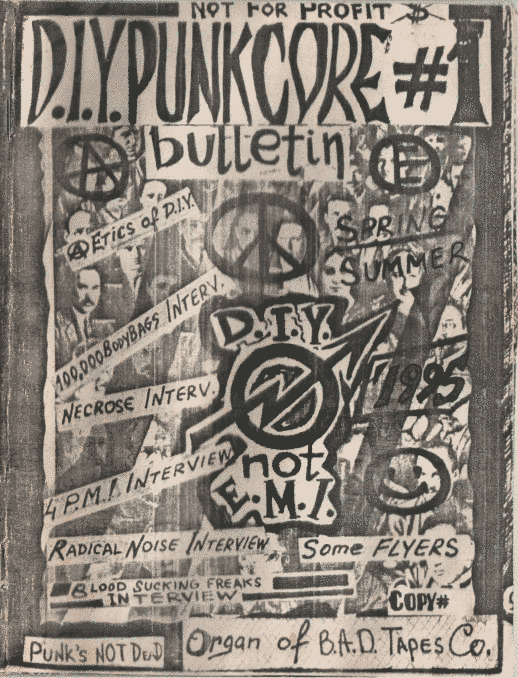 NOT FOR PROFIT $
D.I.Y. PUNKCORE #1
bulletin
A
E
ETICS OF D.I.Y.
SPRING
SUMMER
100,000 BODYBAGS INTERV.
D.I.Y.
1995
NECROSE INTERV.
not
E.M.I.
4 P.M.I. INTERVIEW
RADICAL NOISE INTERVIEW
SOME FLYERS
BLOOD SUCKING FREAKS
INTERVIEW
COPY#
PUNK'S NOT DEAD
Organ of B.A.D. TAPES Co.